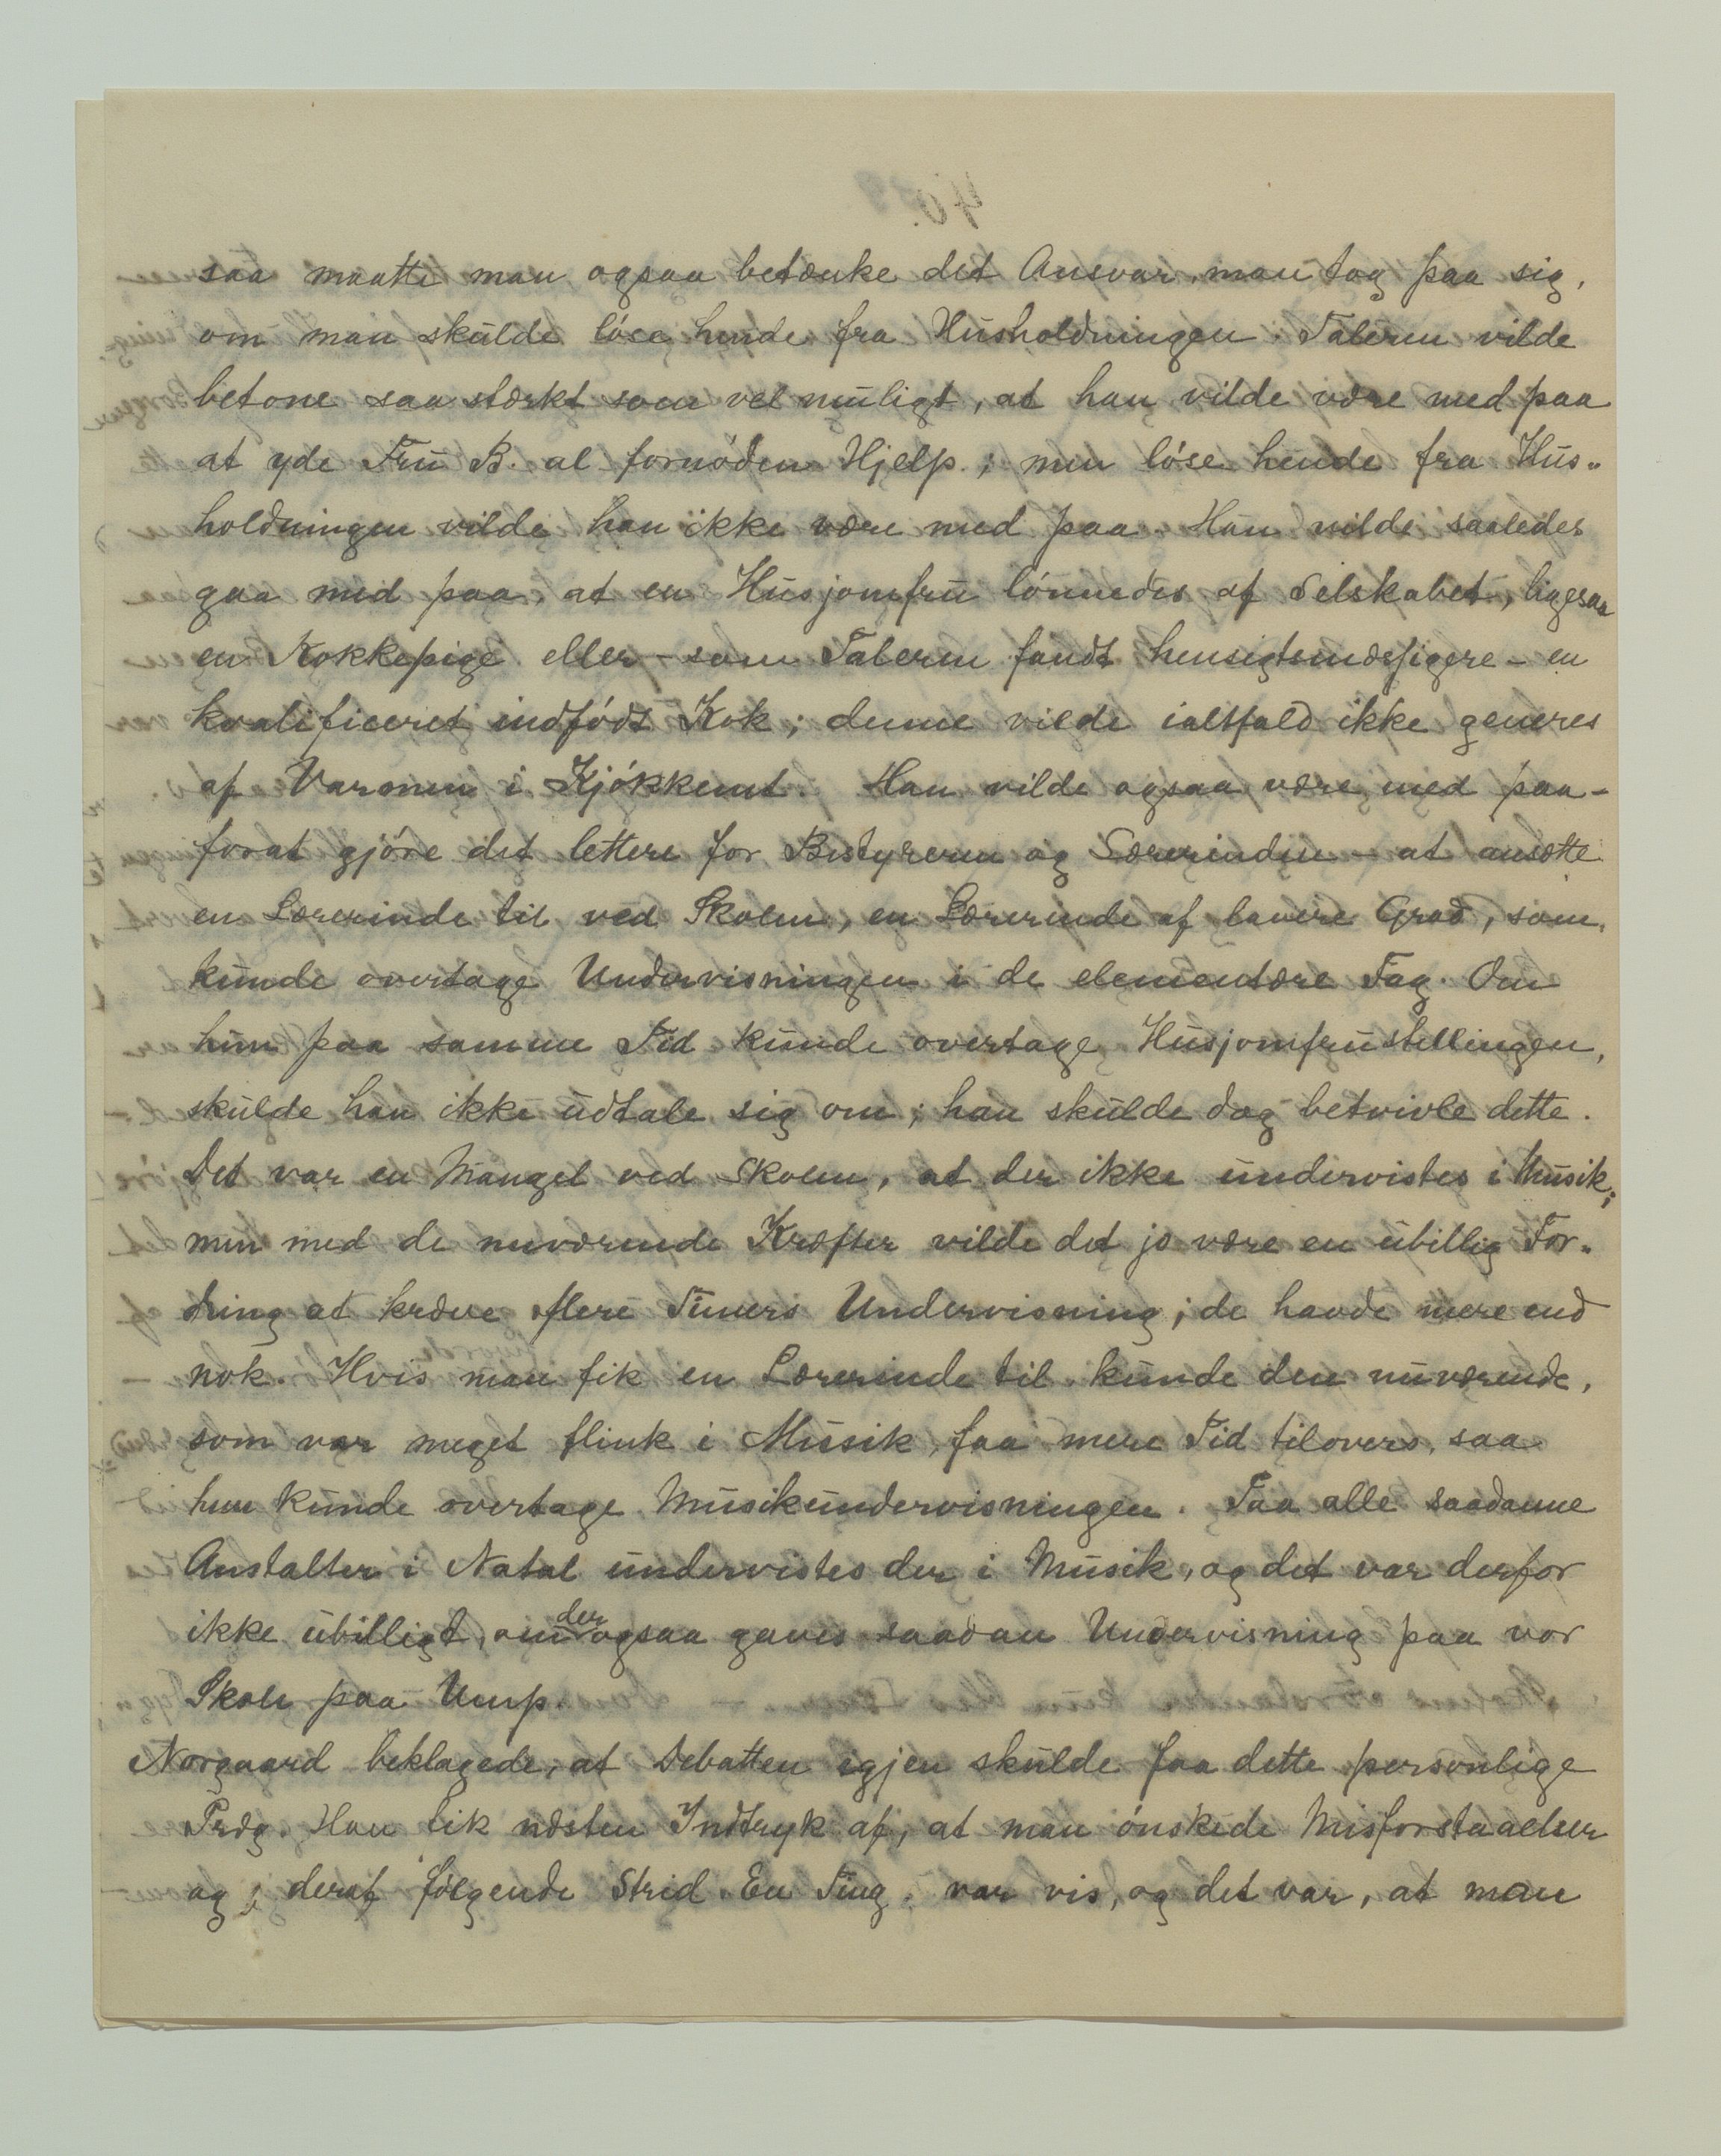 saa maatte man ogsaa betænke det Ansvar, man tog paa sig,
om man skulde löse hende fra Husholdningen. Taleren vilde
betone saa stærkt som vel muligt, at han vilde være med paa
at yde Fru B. al fornöden Hjelp; men löse hende fra Hus-
holdningen vilde han ikke være med paa. Han vilde saaledes
gaa med paa, at en Husjomfru lönnedes af Selskabet, ligesaa
en Kokkepige eller – som Taleren fandt hensigtsmæssigere – en
kvalificeret indfödt Kok; denne vilde ialtfald ikke generes
af Varmen i Kjökkenet. Han vilde ogsaa være med paa –
forat gjöre det lettere for Bestyreren og Lærerinden – at ansætte
en Lærerinde til ved Skolen, en Lærerinde af lavere Grad, som
kunde overtage Undervisningen i de elementære Fag. Om
hun paa samme Tid kunde overtage Husjomfrustillingen,
skulde han ikke udtale sig om; han skulde dog betvivle dette.
Det var en Mangel ved Skolen, at der ikke undervistes i Musik;
men med de nuværende Kræfter vilde det jo være en ubillig For-
dring at kræve flere Timers Undervisning; de havde mere end
nok. Hvis man fik en Lærerinde til kunde den nuværende,
som var meget flink i Musik, faa mere Tid tilovers, saa
hun kunde overtage Musikundervisningen. Paa alle saadanne
Anstalter i Natal undervistes der i Musik, og det var derfor
ikke ubilligt, om der ogsaa gaves saadan Undervisning paa vor
Skole paa Ump.
Norgaard beklagede, at Debatten igjen skulde faa dette personlige
Præg. Han fik næsten Indtryk af, at man önskede Misforstaaelser
og deraf fölgende Strid. En Ting var vis, og det var, at man